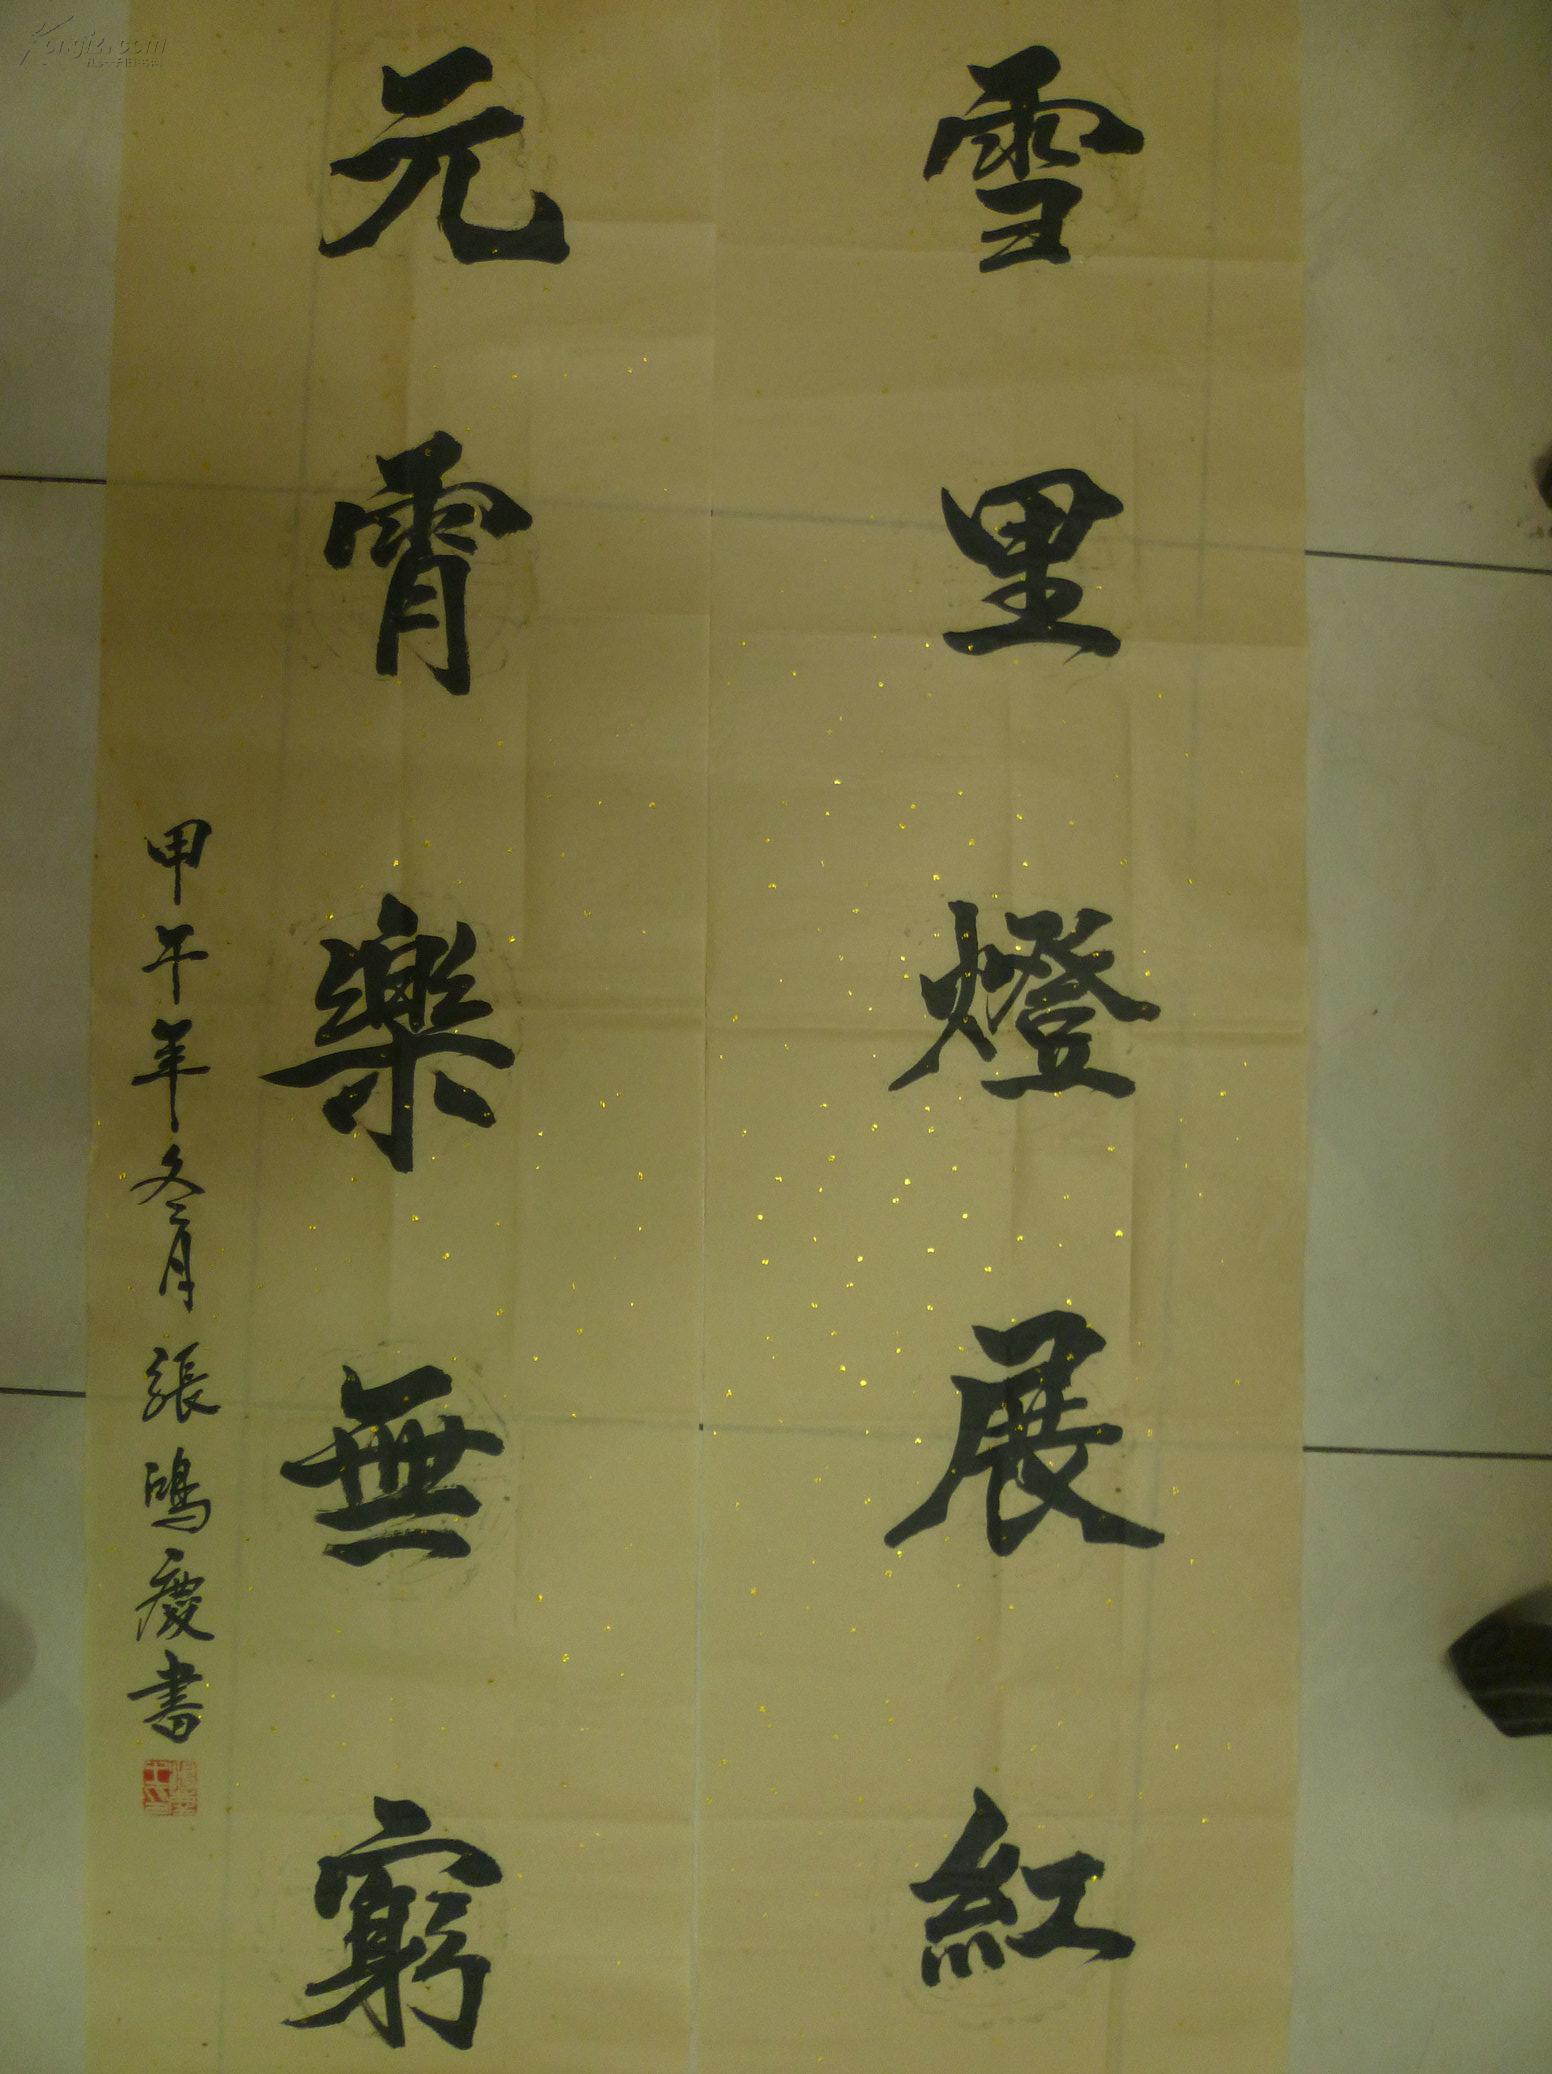 雪里燈展紅
元霄樂無窮
甲午年冬月張鴻慶書